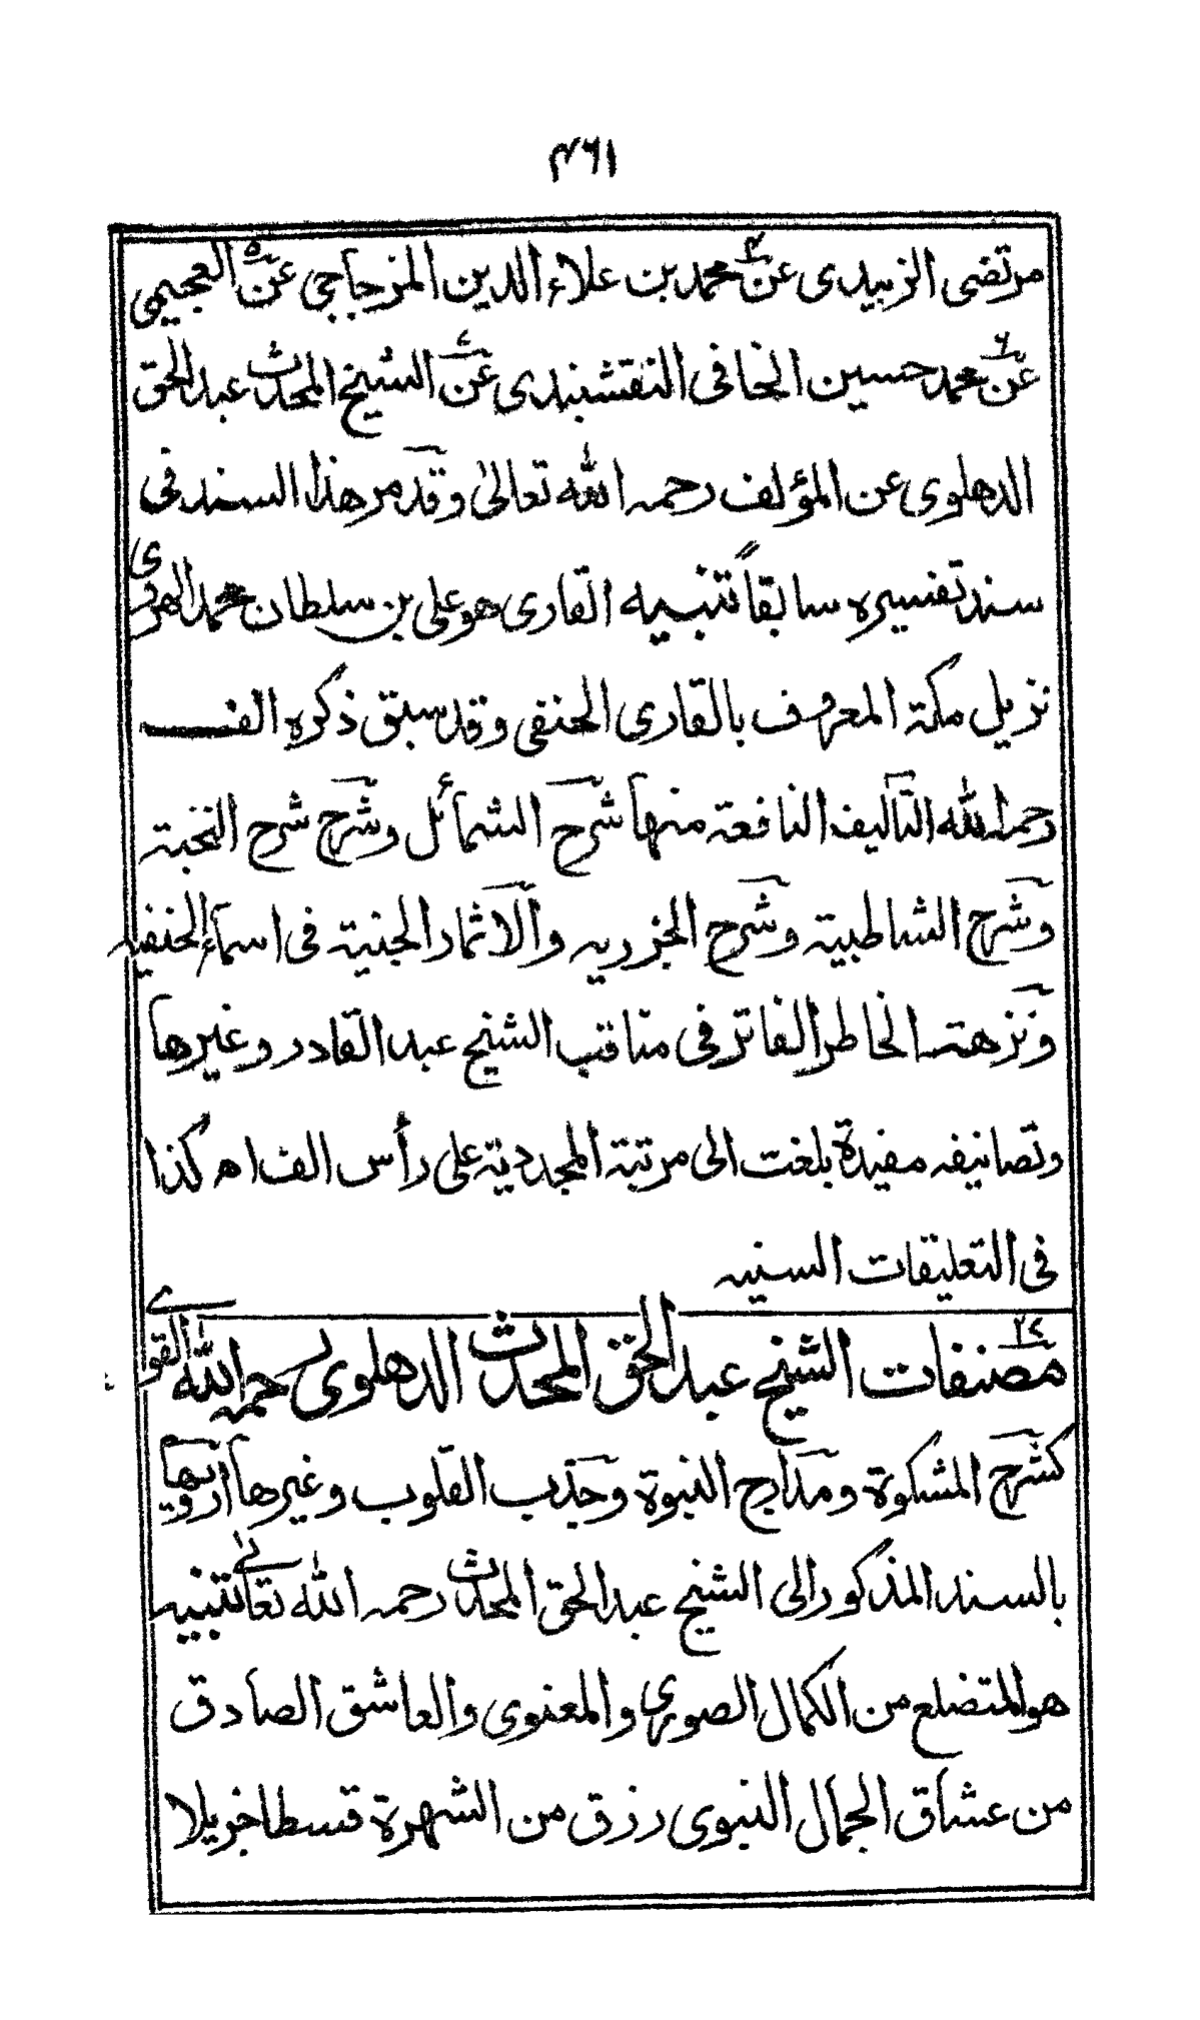 ۴۶۱
مرتضی الزبیدی عن۴ محمد بن علاء الدین المزجاجی عن۵ العجیمی
عن۶ محمد حسین الخافی النقشبندی عن۷ الشیخ المحدث عبد الحق
الدهلوی عن المؤلف رحمہ اللہ تعالیٰ وقد مر هذا السند فی
سند تفسیرہ سابقاً تنبیہ القاری هو علی بن سلطان محمد الهروی
نزیل مکۃ المعروف بالقاری الحنفی وقد سبق ذکرہ الف
رحمہ اللہ التآلیف النافعۃ منها شرح الشمائل وشرح شرح النخبۃ
وشرح الشاطبیۃ وشرح الجزریہ والاثمار الجنیۃ فی اسماء الحنفیہ
ونزهۃ الخاطر الفاتر فی مناقب الشیخ عبد القادر وغیرها
وتصانیفہ مفیدۃ بلغت الی مرتبۃ المجددیۃ علی رأس الف اھ کذا
فی التعلیقات السنیہ
۲۷ مصنفات الشیخ عبد الحق المحدث الدهلوی رحمہ اللہ القوی
کشرح المشکوۃ ومدارج النبوۃ وجذب القلوب وغیرها ارویها
بالسند المذکور الی الشیخ عبد الحق المحدث رحمہ اللہ تعالیٰ تنبیہ
هو المتضلع من الکمال الصوری والمعنوی والعاشق الصادق
من عشاق الجمال النبوی رزق من الشهرۃ قسطا جزیلا